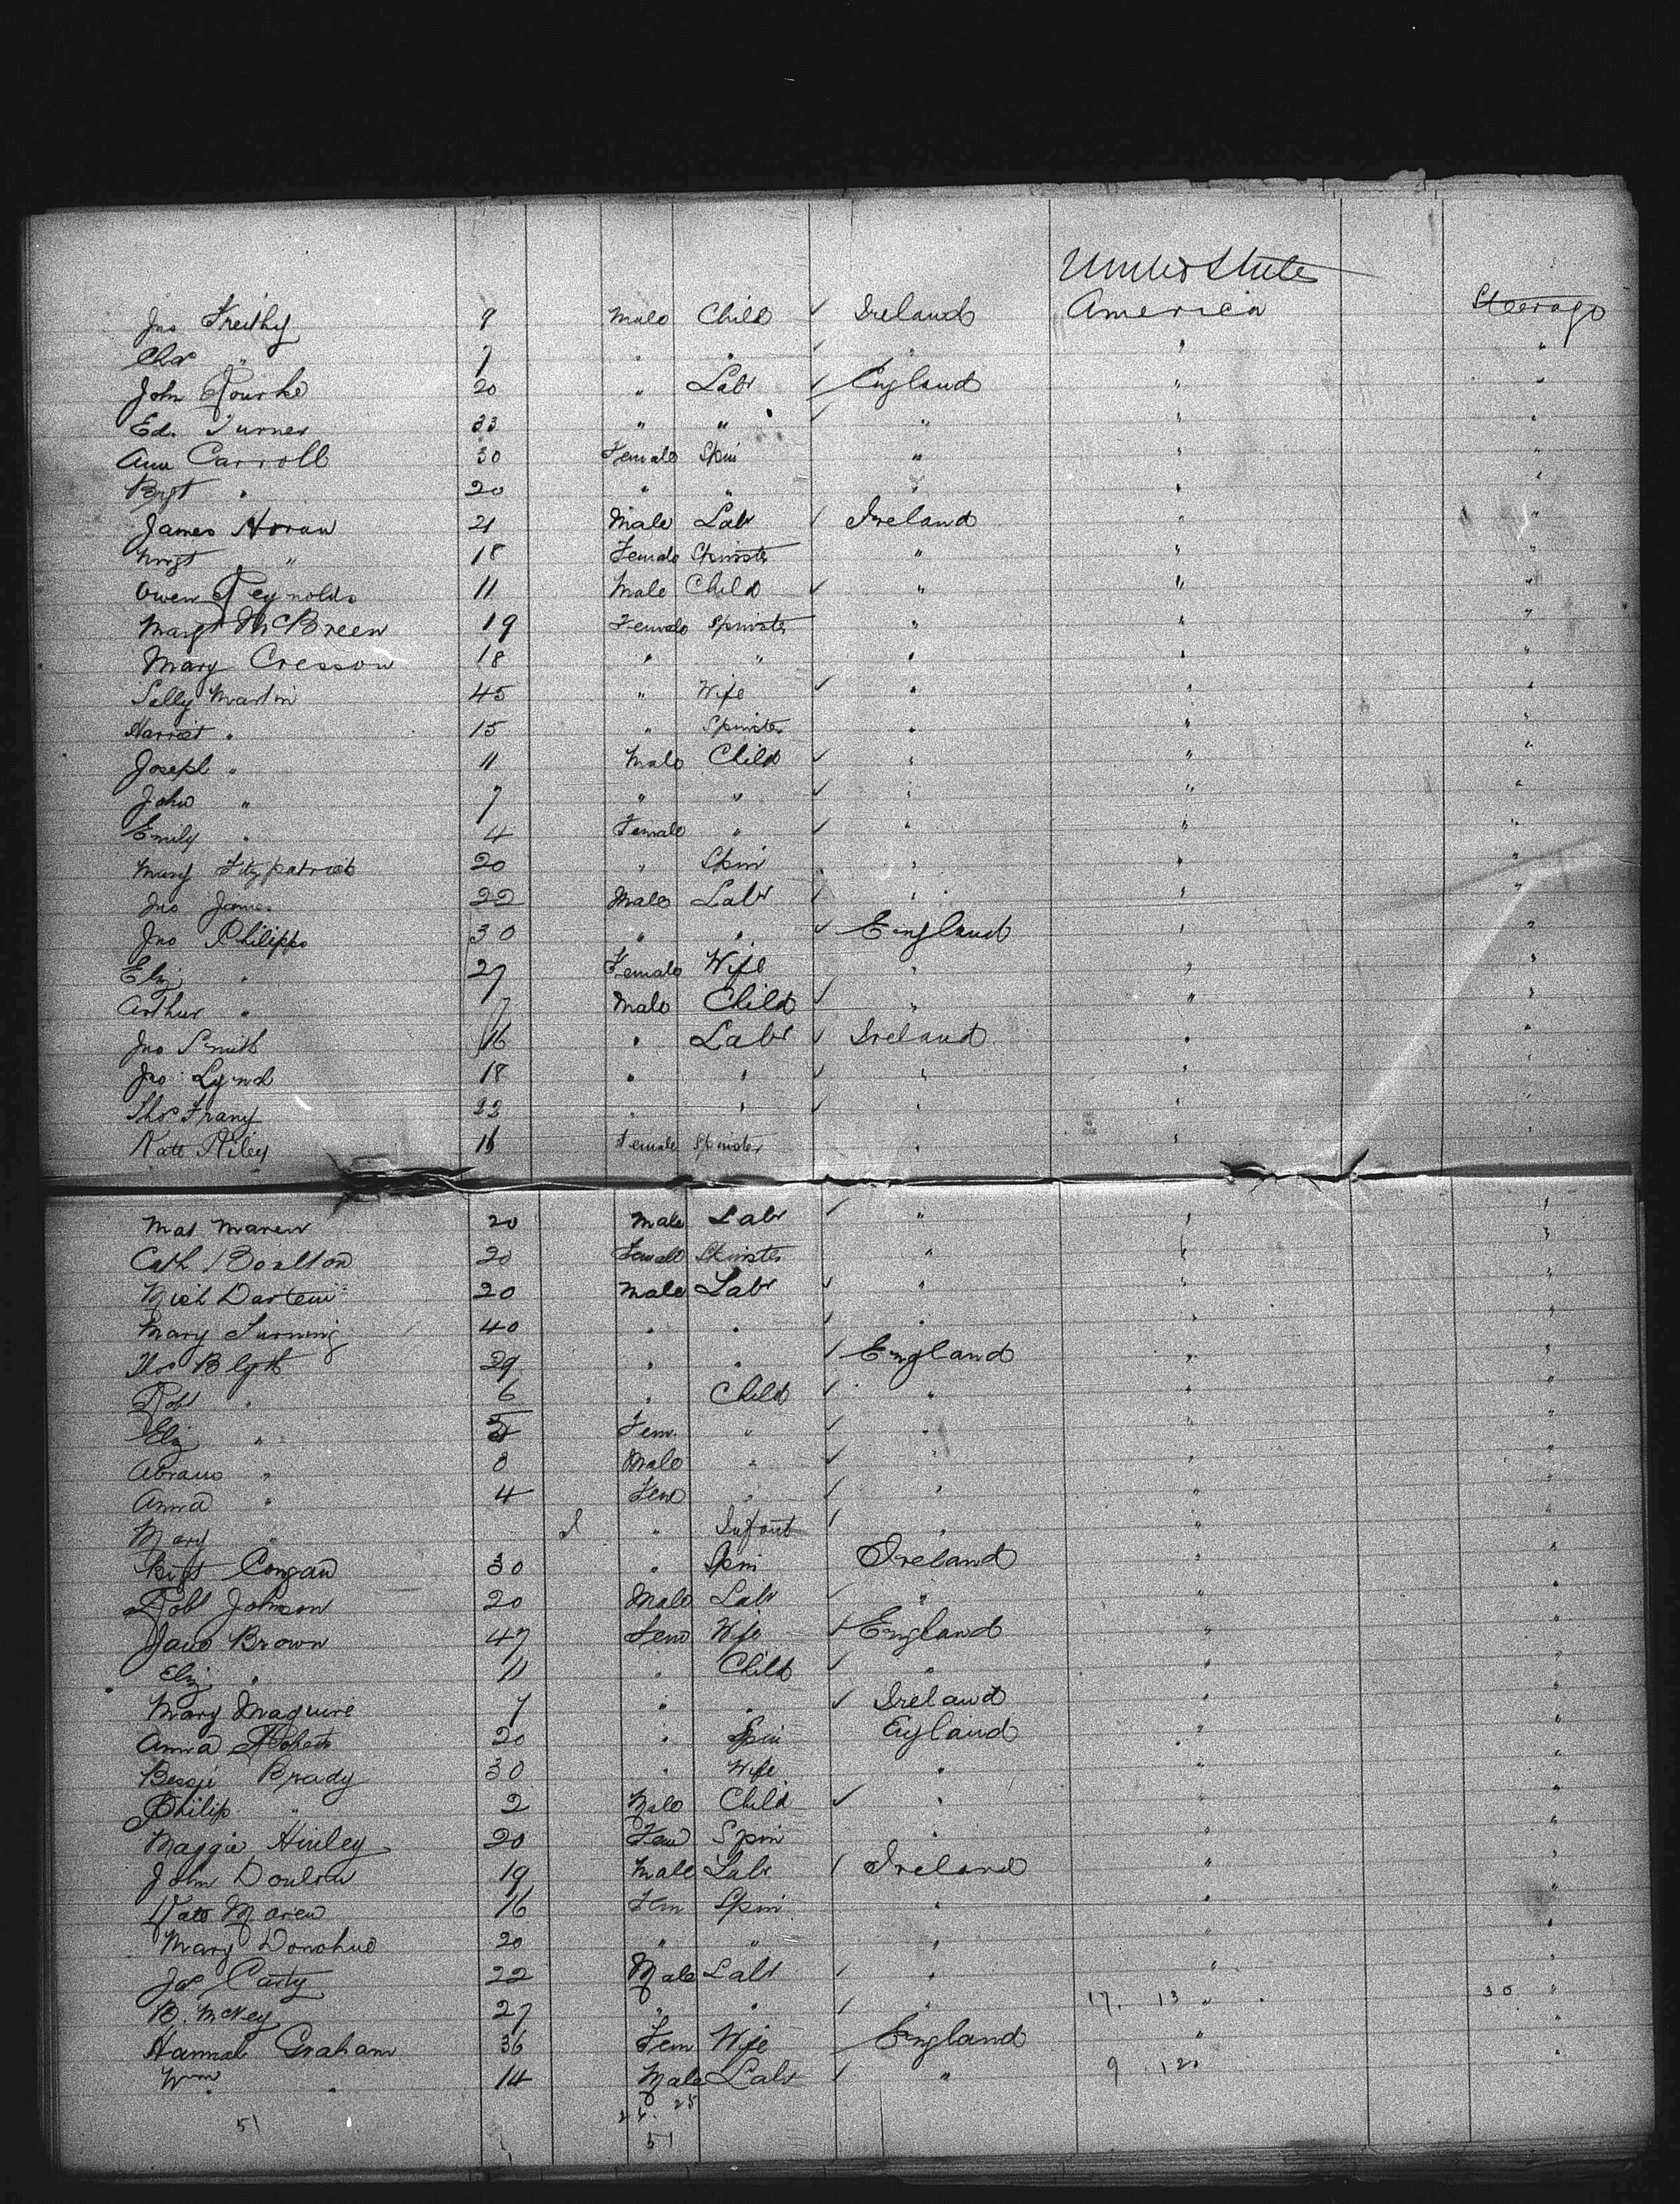 United States
Jno Freithy 9 Male Child ✓ Ireland America Steerage
Chas " 7 " " ✓ " " "
John Rourke 20 " Labr ✓ England " "
Ed. Turner 33 " " ✓ " " "
Ann Carroll 30 Female Spin " " "
Brgt " 20 " " " " "
James Horan 21 Male Labr ✓ Ireland " "
Mrgt " 18 Female Spinster " " "
Owen Reynolds 11 Male Child ✓ " " "
Margt McBreen 19 Female Spinster " " "
Mary Cresson 18 " " " " "
Sally Martin 45 " Wife ✓ " " "
Harriet " 15 " Spinster " " "
Joseph " 11 Male Child ✓ " " "
John " 7 " " ✓ " " "
Emily " 4 Female " ✓ " " "
Mary Fitzpatrick 20 " Spin " " "
Jno James 22 Male Labr ✓ " " "
Jno Philipps 30 " " ✓ England " "
Eliz " 27 Female Wife " " "
Arthur " 7 Male Child ✓ " " "
Jno Smith 16 " Labr ✓ Ireland " "
Jno Lynch 18 " " ✓ " " "
Thos Frany 22 " " ✓ " " "
Kate Riley 16 Female Spinster " " "
Mat Maren 20 Male Labr ✓ " " "
Cath Boulton 20 Female Spinster " " "
Mich 20 Male Labr ✓ " " "
Mary 40 " " ✓ " " "
Thos Blyth 29 " " ✓ England " "
Robt " 6 " Child ✓ " " "
Eliz " Fem " ✓ " " "
Abram " 8 Male " ✓ " " "
Anna " 4 Fem " ✓ " " "
Mary " " Infant ✓ " " "
Congan 30 " Spin Ireland " "
Robt Johnson 20 Male Labr ✓ " " "
Jane Brown 47 Fem Wife ✓ England " "
Eliz " 11 " Child ✓ " " "
Mary Maguire 7 " " ✓ Ireland " "
Anna 20 " Spin England " "
Bessie Brady 30 " Wife " " "
Philip " 2 Male Child ✓ " " "
Maggie Hinley 20 Fem Spin " " "
John Doulon 19 Male Labr ✓ Ireland " "
Kate Maren 16 Fem Spin " " "
Mary Donohue 20 " " " " "
Jas Carty 22 Male Labr ✓ " " "
B. McKey 27 " " ✓ " 17. 13 " 30 "
Hannah Graham 36 Fem Wife England " "
Wm " 14 Male Labr ✓ " 9 12 " "
51 24. 25
51